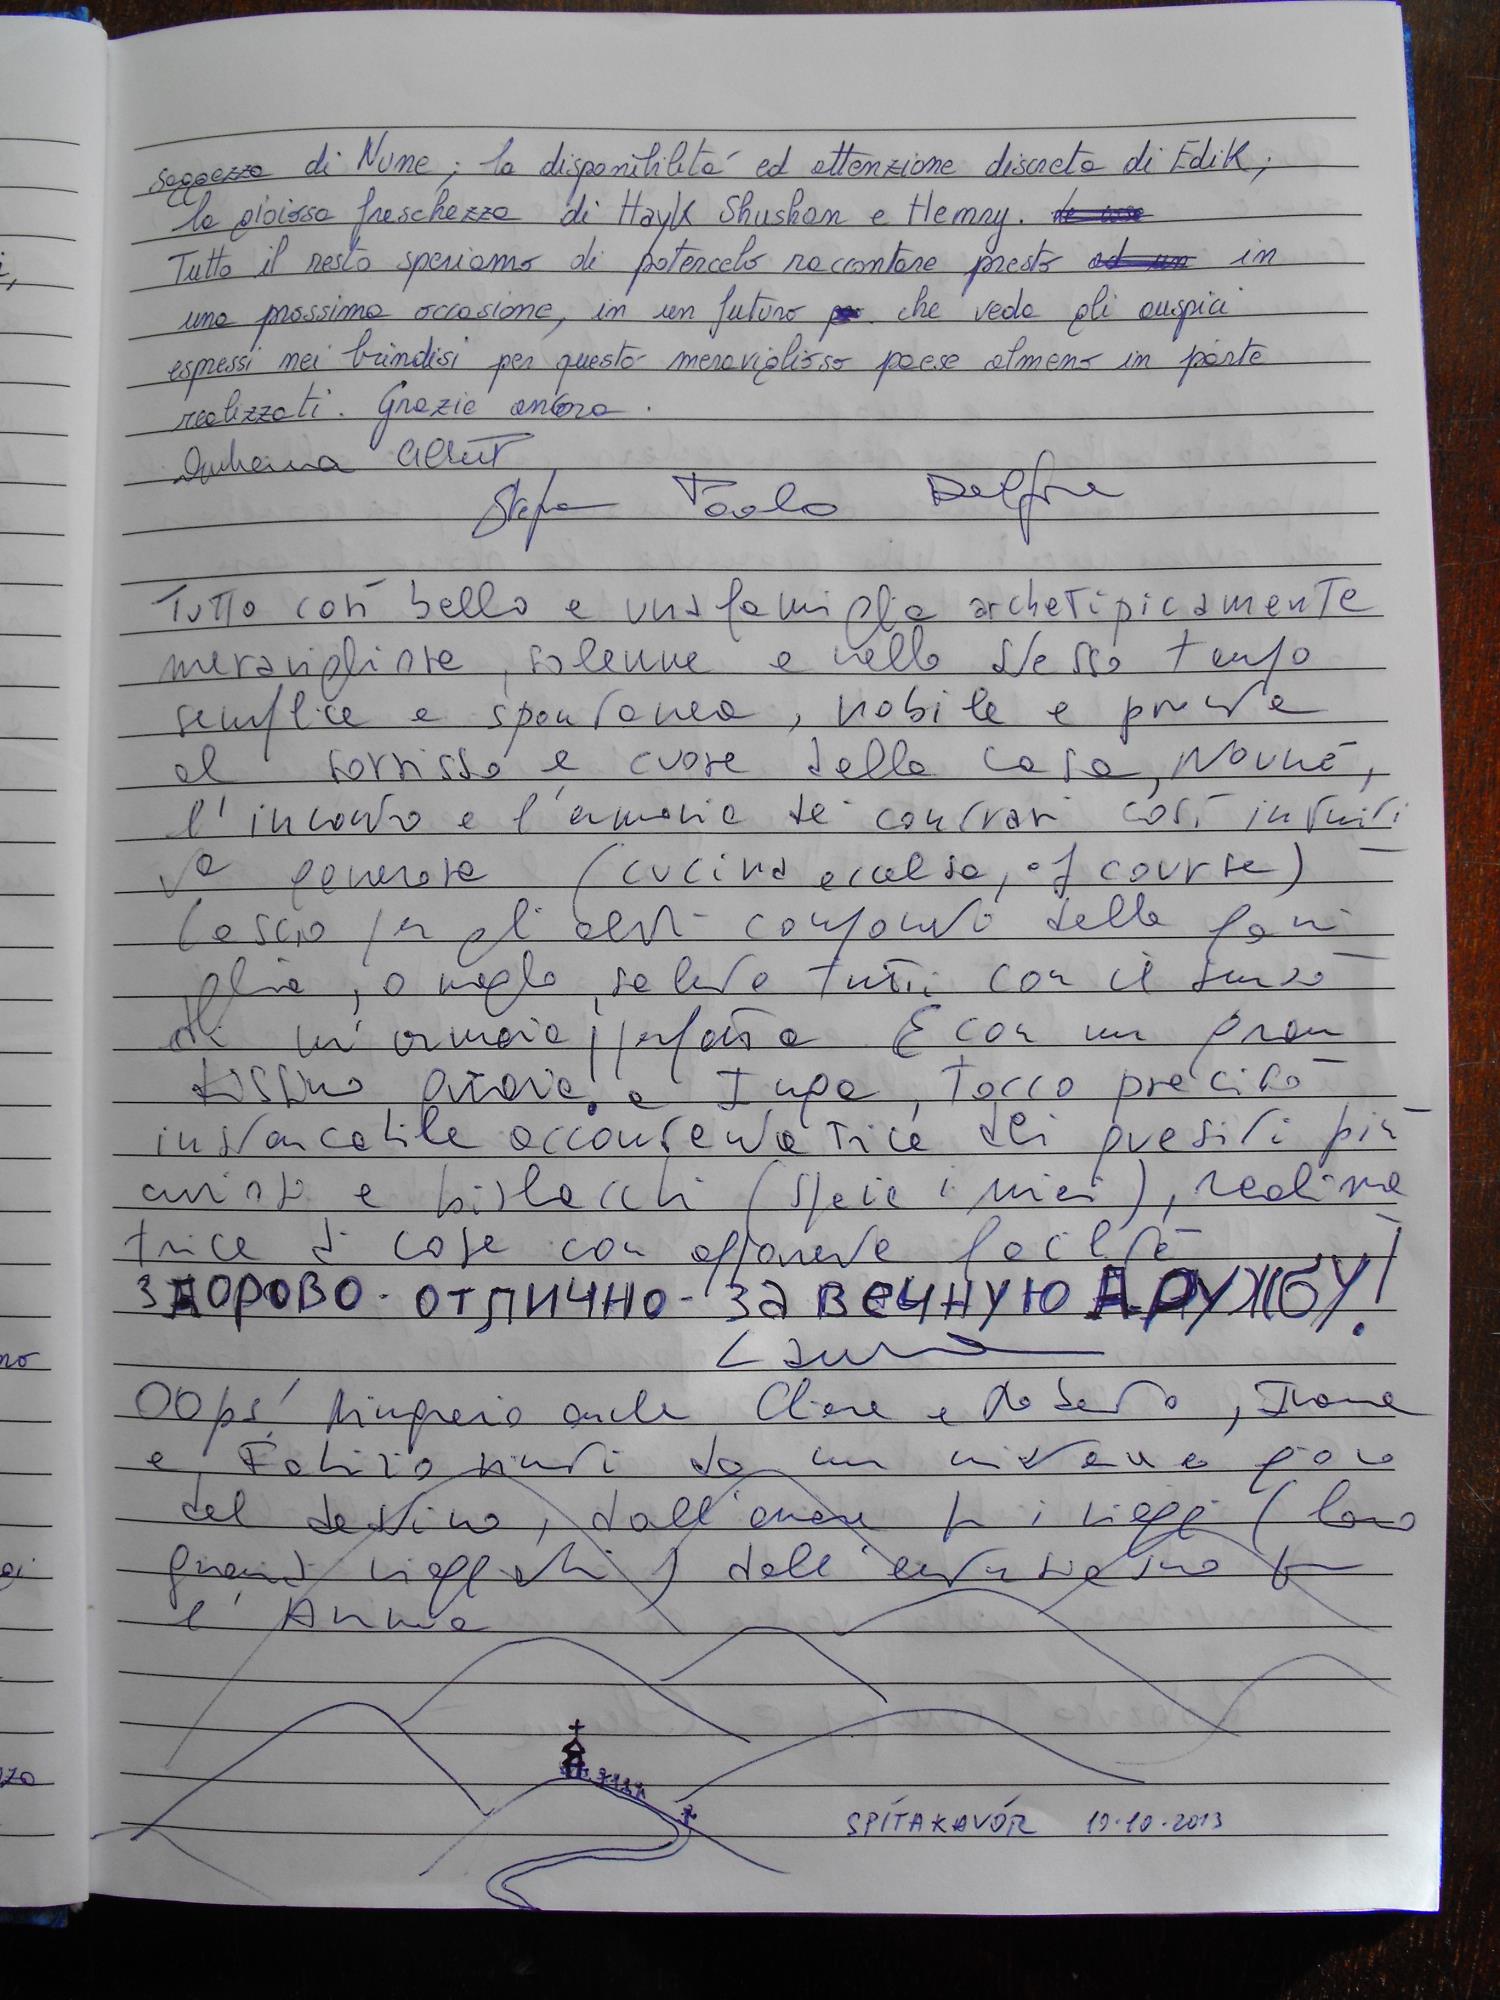 saggezza di Nune; la disponibilità ed attenzione discreta di Edik;
la gioiosa freschezza di Hayk Shushan e Hemry.
Tutto il resto speriamo di potercelo raccontare presto in
una prossima occasione, in un futuro che veda gli auspici
espressi nei brindisi per questo meraviglioso paese almeno in parte
realizzati. Grazie ancora.
Stefano Paolo
Tutto così bello e una famiglia archetipicamente
meravigliosa, solenne e nello stesso tempo
semplice e spontanea, nobile e
al sorriso e cuore della casa, Nouné,
l'incontro e l'armonia dei contrari così intuiti
va generosa (cucina eccelsa, of course)
Lascio per gli altri componenti della fami
glia, o meglio, saluto tutti con il senso
di un'armonia perfetta E con un gran
dissimo grazie a Inga, tocco preciso
instancabile accontentatrice dei quesiti più
e bislacchi (specie i miei), realizza
trice di cose con apparente facilità
ЗДОРОВО - ОТЛИЧНО - ЗА ВЕЧНУЮ ДРУЖБУ!
Laura
OOps! Ringrazio anche Chiara e Roberto, Ivana
e Fabrizio riuniti da un misterioso gioco
del destino, dall'amore per i viaggi (loro
grandi viaggiatori) dall'entusiasmo per
l'Armenia
SPITAKAVÓR 19.10.2013
no
zo